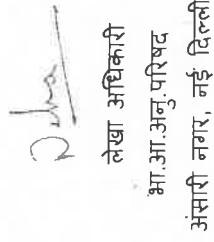 लेखा अधिकारी
भा.आ.अनु.परिषद
अंसारी नगर, नई दिल्ली